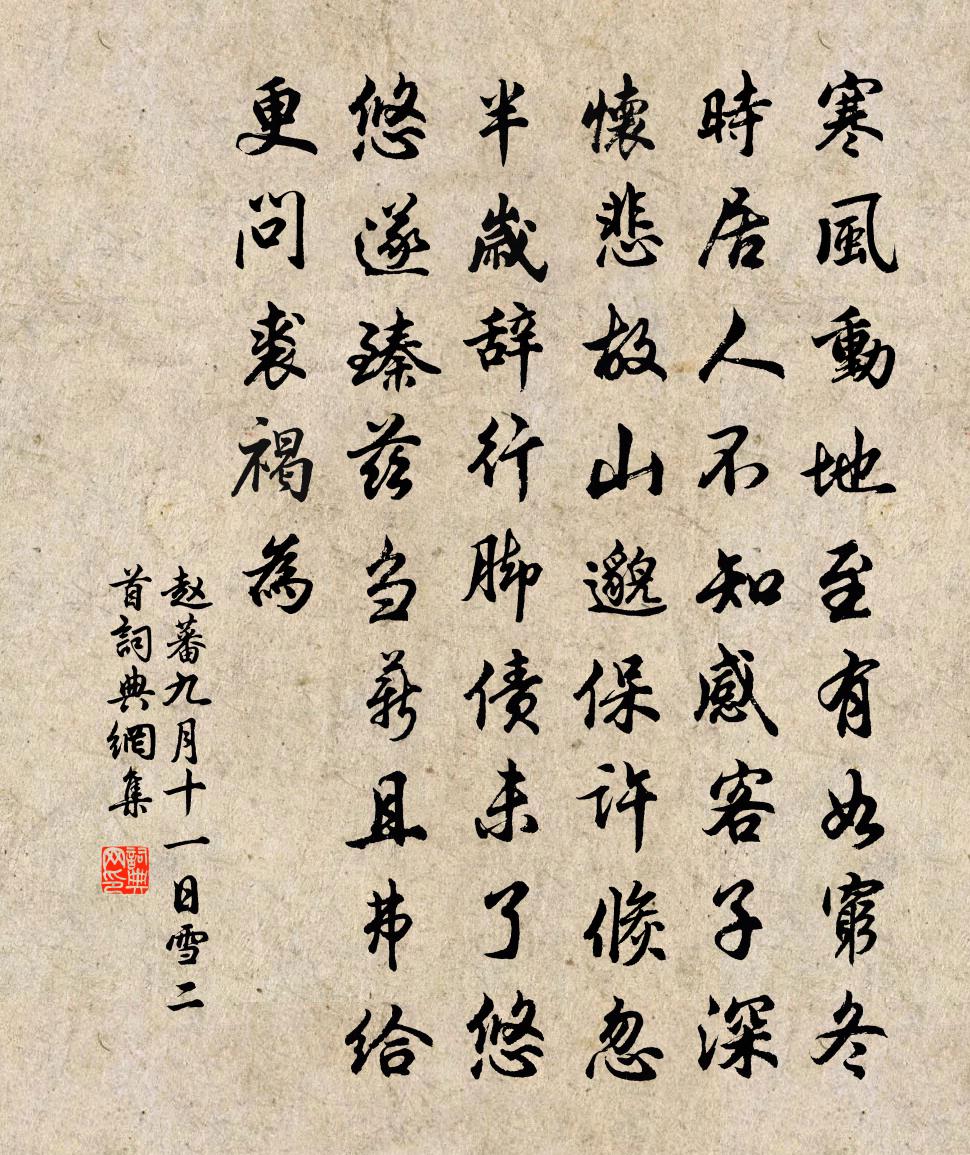 寒風動地至有如窮冬
時居人不知感客子深
懷悲故山邈保許倐忽
半歲辞行脚债未了悠
悠遂臻兹刍薪且弗给
更問裘褐為
赵蕃九月十一日雪二
首詞典網集
詞典网印